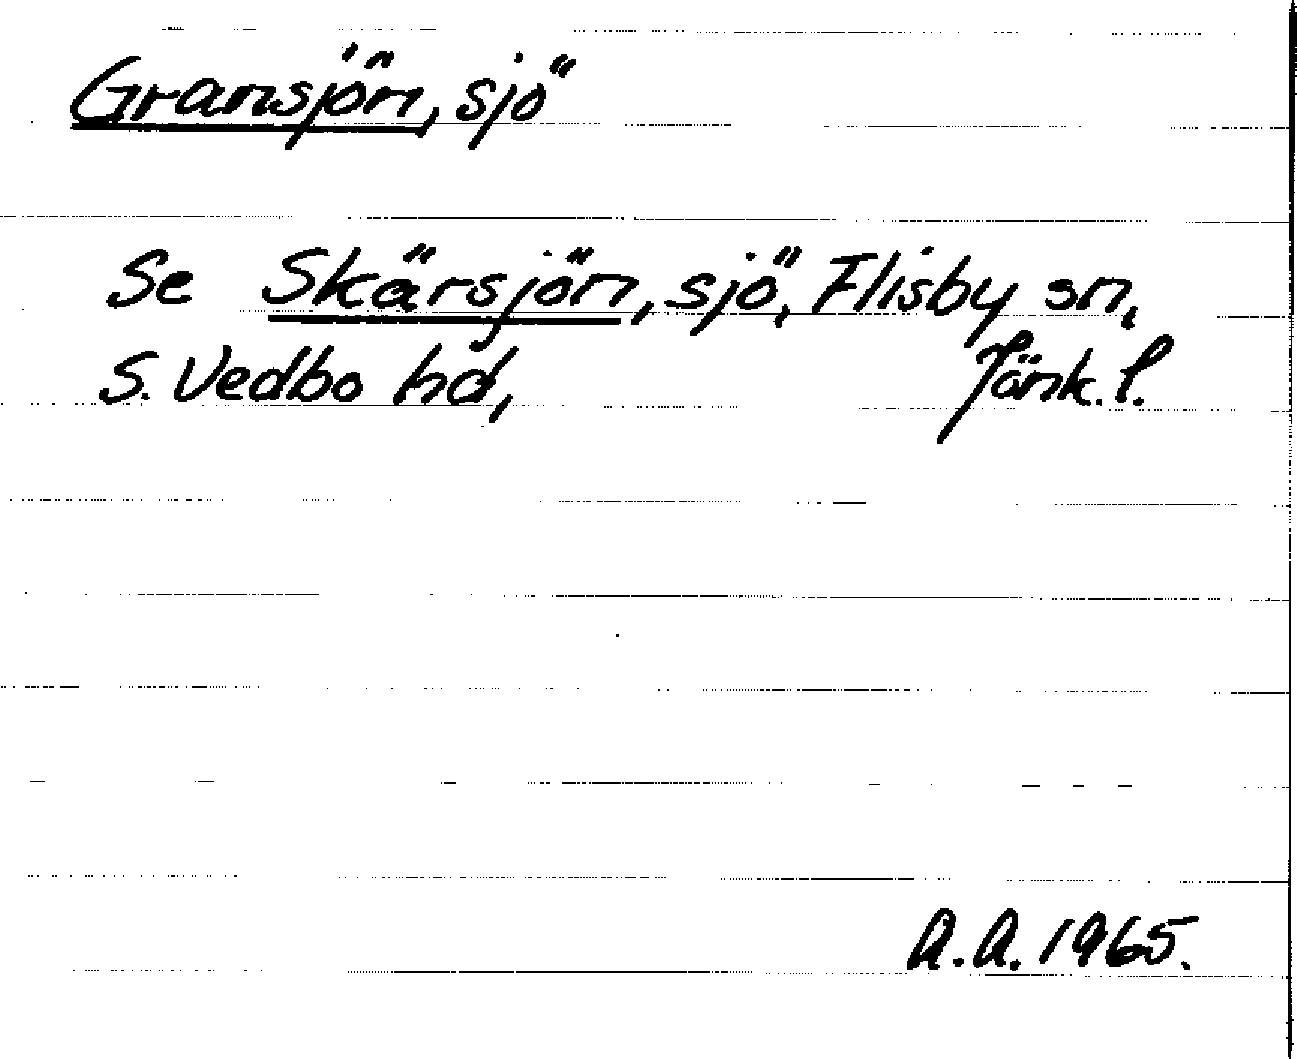 Gransjön, sjö
Se Skärsjön, sjö, Flisby sn,
S. Vedbo hd, Jönk. l.
A.A. 1965.